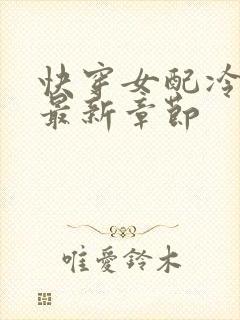 快穿女配冷
最新章节
唯愛鈴木